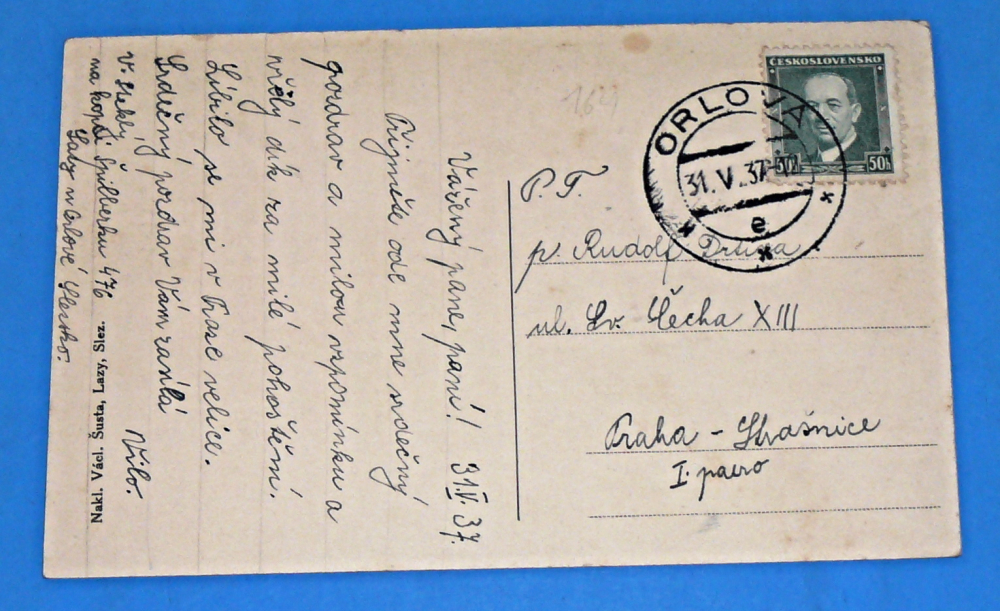 Vážený pane, paní! 31.V.37.
Přijměte ode mne srdečný
pozdrav a milou vzpomínku a
vřelý dík za milé pohoštění.
Líbilo se mi v Praze velice.
Srdečný pozdrav Vám zasílá
Vilo.
V.
na kopci 476
Lazy u Orlové Slezsko.
Nakl. Václ. Šusta, Lazy, Slez.
164
ČESKOSLOVENSKO
50h 50h
ORLOVÁ
31.V.37
e
P. T.
p. Rudolf Drtina
ul. Sv. Čecha XIII
Praha - Strašnice
I.